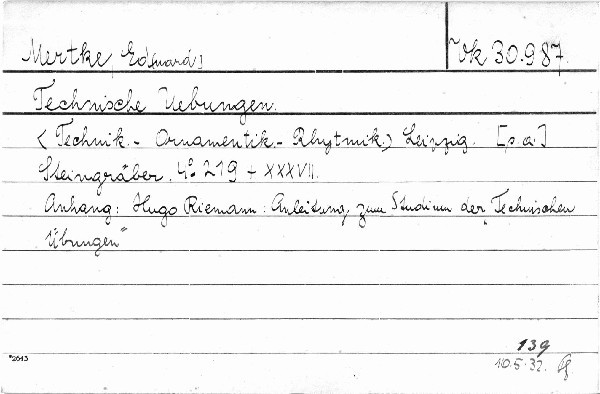 Mertke, Ed[uard]
Vk 30.987.
Technische Uebungen.
(Technik.- Ornamentik.- Rhytmik.) Leipzig. [s a]
Steingräber. 4° 219 + XXXVII.
Anhang: Hugo Riemann: Anleitung zum Studium der „Technischen
Übungen"
139
*2643
10.5.32.